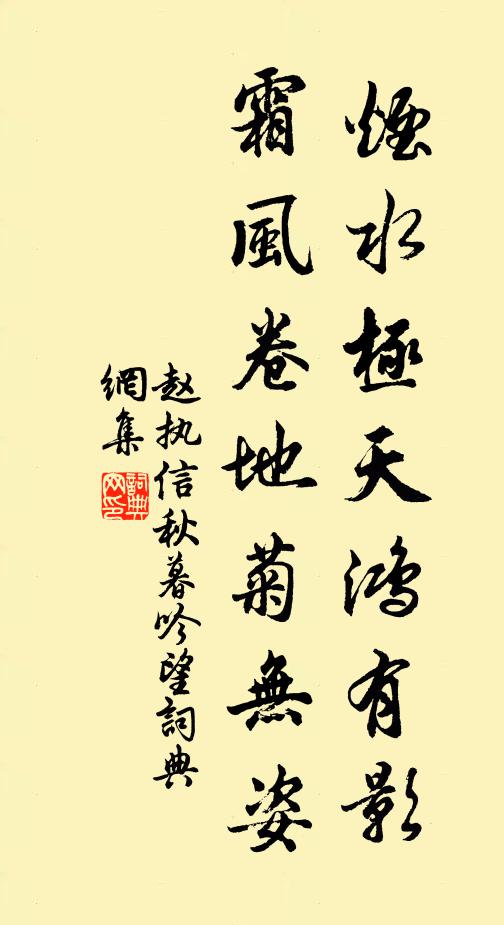 煙水極天鴻有影
霜風卷地菊無姿
赵执信秋暮吟望詞典
網集
詞典
网印